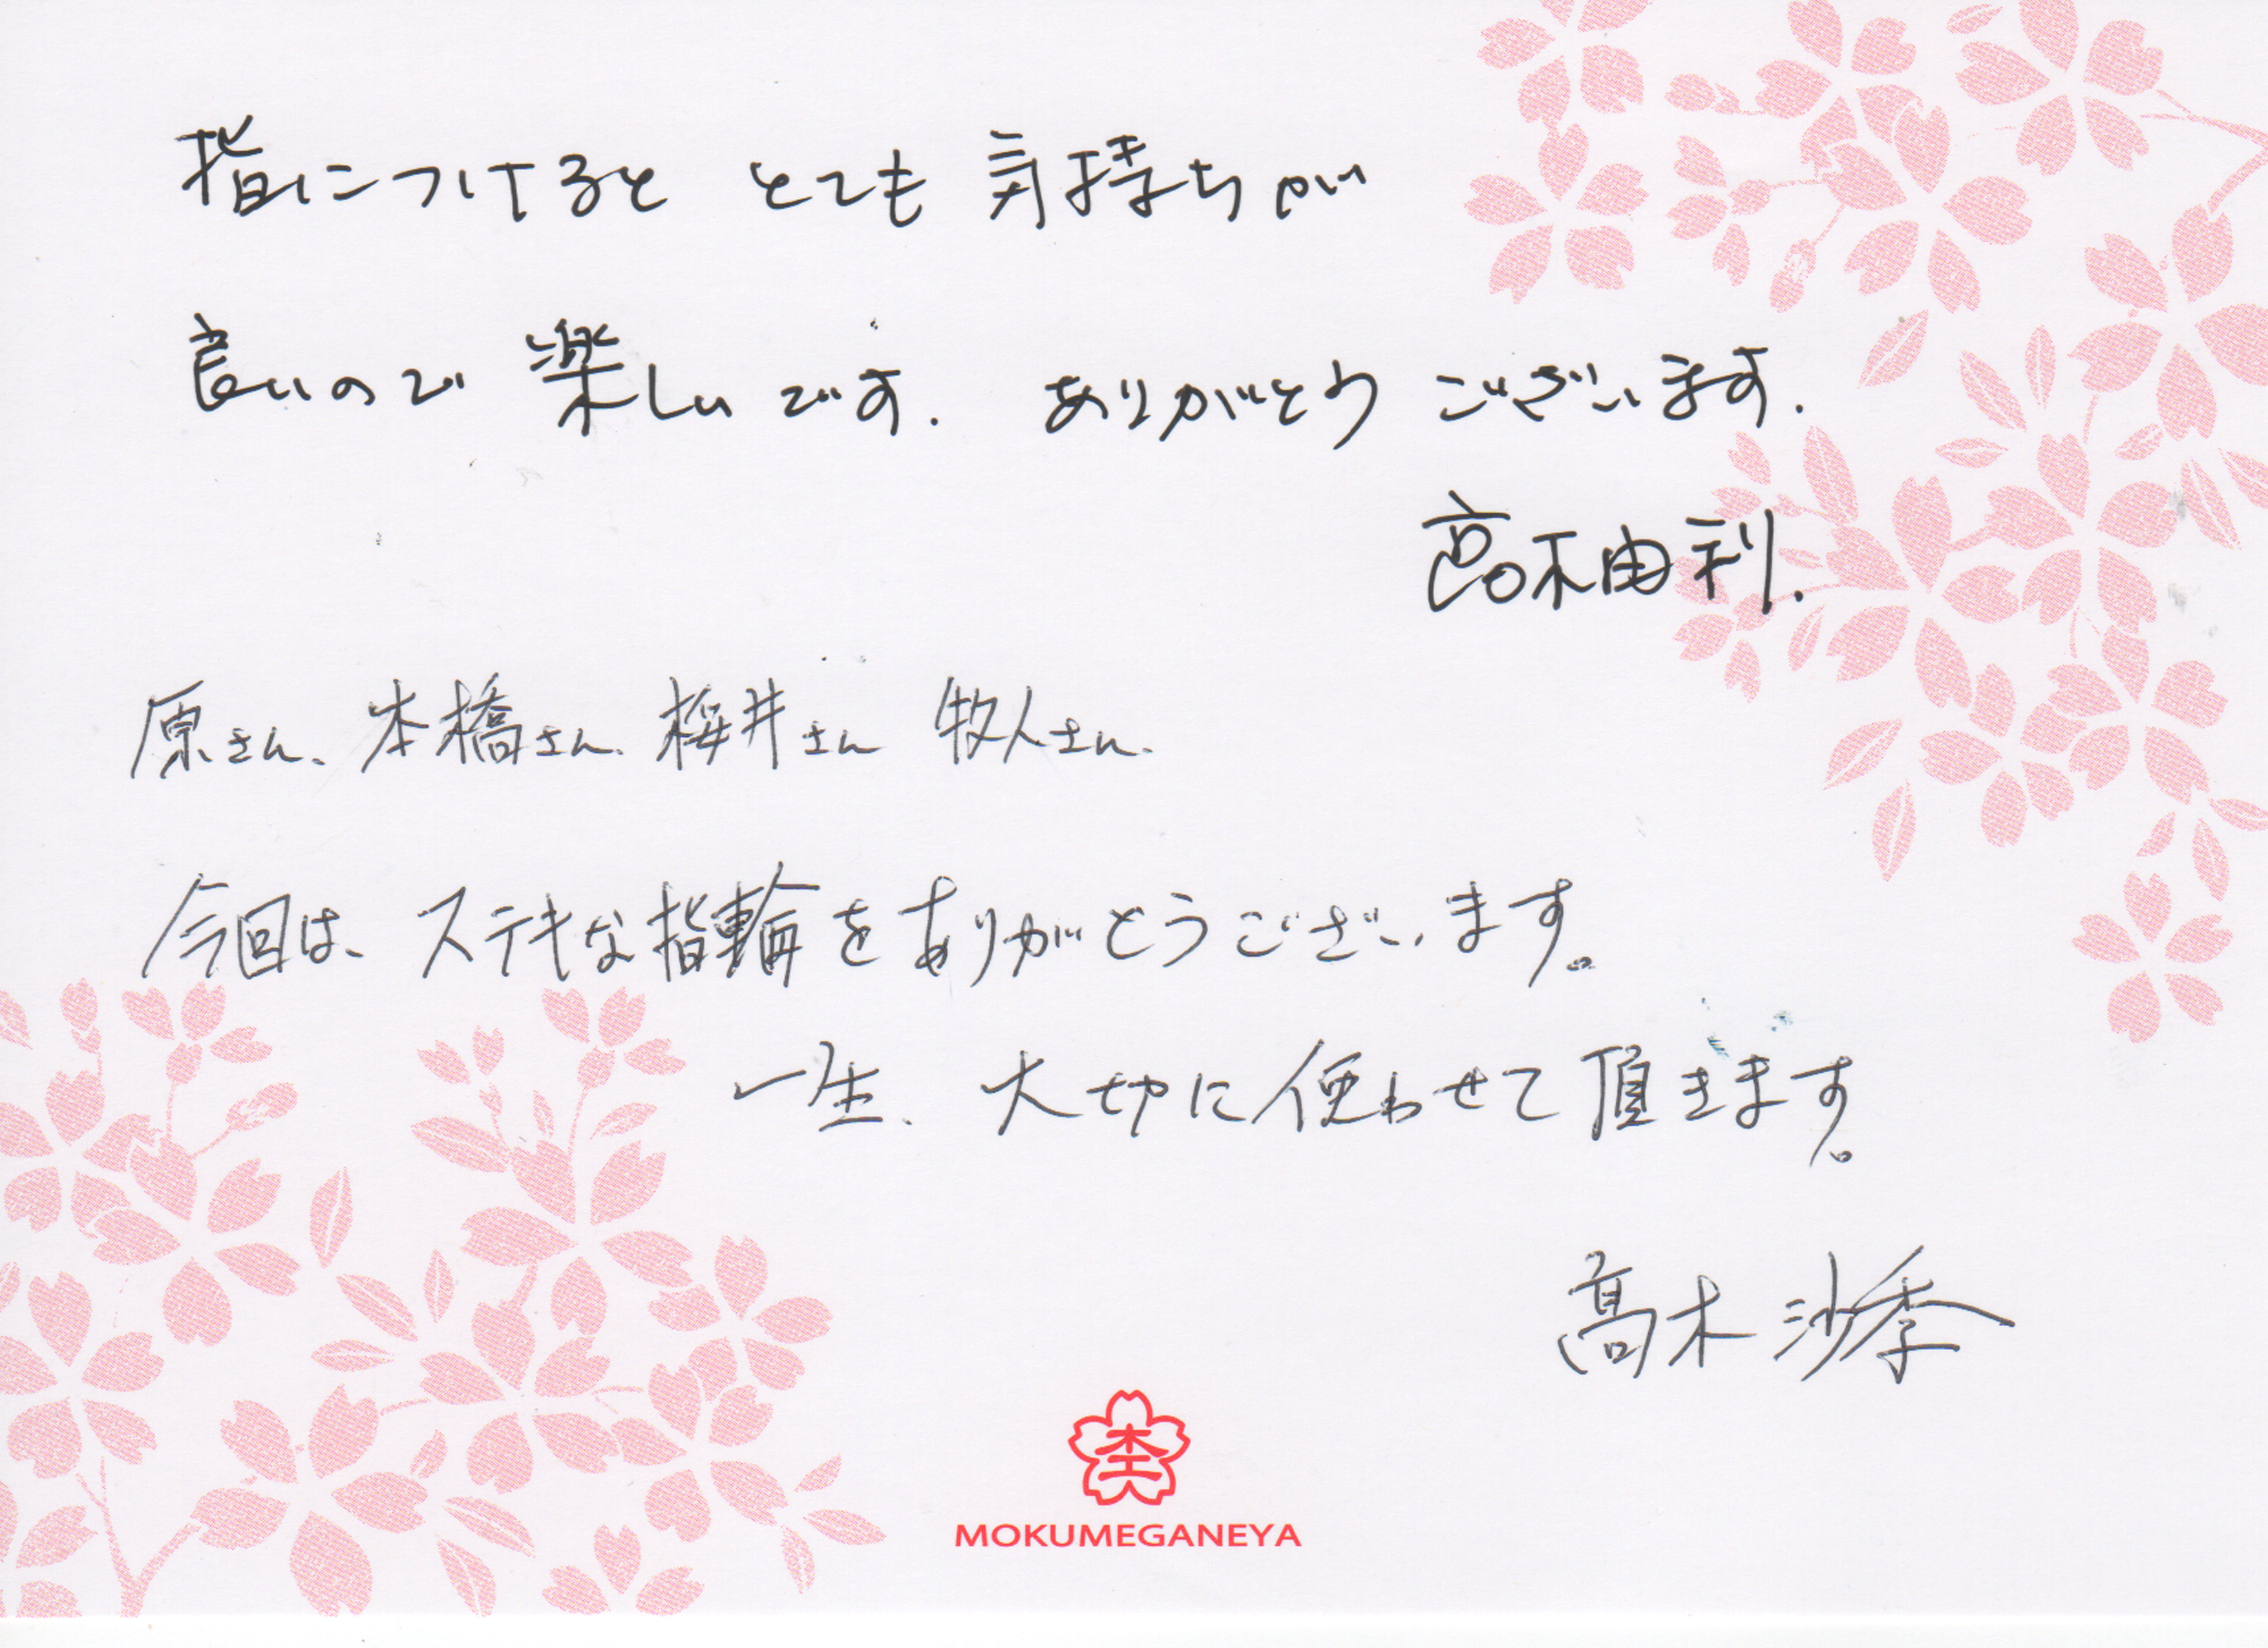 指につけると とても 気持ちが
良いので 楽しいです. ありがとう ございます.
高木由利.
原さん、本橋さん、桜井さん 牧人さん、
今回は、ステキな指輪をありがとうございます。
一生、大切に使わせて頂きます。
髙木沙季
杢
MOKUMEGANEYA